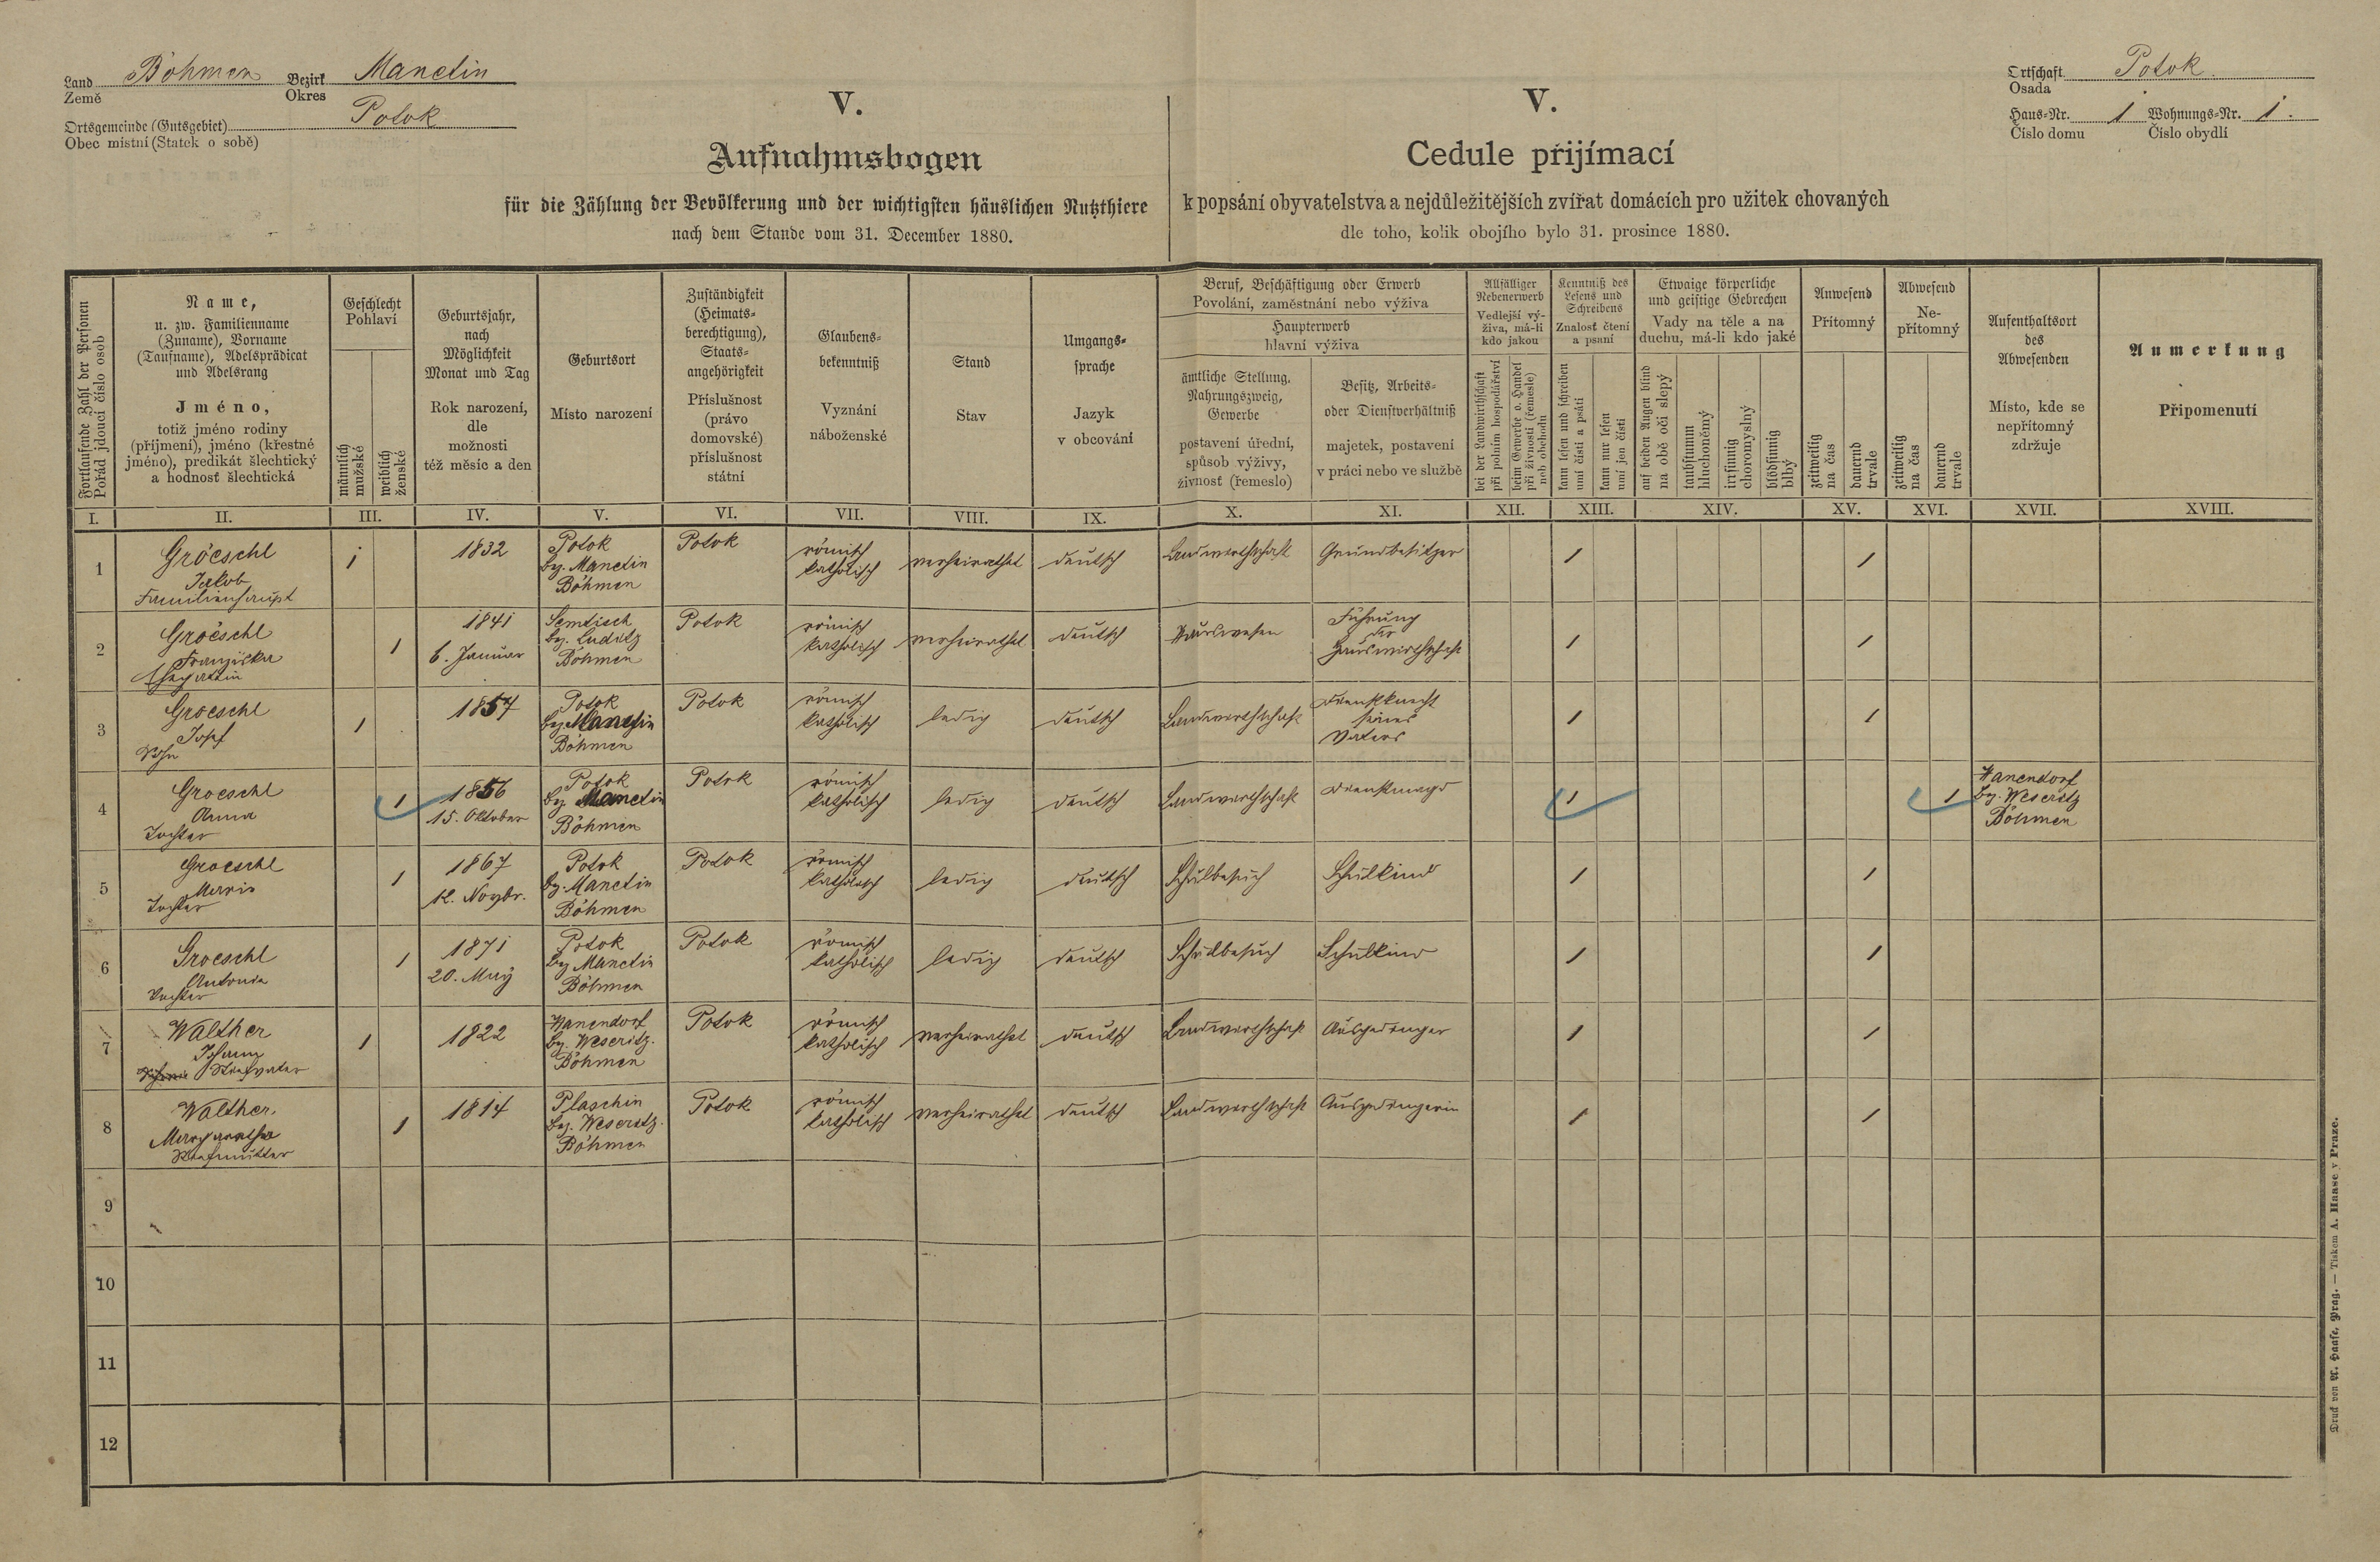 Land Böhmen Bezirk Manetin
Země Okres
Ortsgemeinde (Gutsgebiet) Potok
Obec místní (Statek o sobě)
V.
Aufnahmsbogen
für die Zählung der Bevölkerung und der wichtigsten häuslichen Nutzthiere
nach dem Stande vom 31. December 1880.
V.
Cedule přijímací
k popsání obyvatelstva a nejdůležitějších zvířat domácích pro užitek chovaných
dle toho, kolik obojího bylo 31. prosince 1880.
Ortschaft Potok.
Osada
Haus-Nr. 1 Wohnungs-Nr. 1.
Číslo domu Číslo obydlí
Fortlaufende Zahl der Personen
Pořád jdoucí číslo osob
Name,
u. zw. Familienname
(Zuname), Vorname
(Taufname), Adelsprädicat
und Adelsrang
Jméno,
totiž jméno rodiny
(příjmení), jméno (křestné
jméno), predikát šlechtický
a hodnosť šlechtická
Geschlecht
Pohlaví
männlich
mužské
weiblich
ženské
Geburtsjahr,
nach
Möglichkeit
Monat und Tag
Rok narození,
dle
možnosti
též měsíc a den
Geburtsort
Místo narození
Zuständigkeit
(Heimats-
berechtigung),
Staats-
angehörigkeit
Příslušnost
(právo
domovské)
příslušnost
státní
Glaubens-
bekenntniß
Vyznání
náboženské
Stand
Stav
Umgangs-
sprache
Jazyk
v obcování
Beruf, Beschäftigung oder Erwerb
Povolání, zaměstnání nebo výživa
Haupterwerb
hlavní výživa
ämtliche Stellung,
Nahrungszweig,
Gewerbe
postavení úřední,
spůsob výživy,
živnosť (řemeslo)
Besitz, Arbeits-
oder Dienstverhältniß
majetek, postavení
v práci nebo ve službě
Allfälliger
Nebenerwerb
Vedlejší vý-
živa, má-li
kdo jakou
bei der Landwirthschaft
při polním hospodářství
beim Gewerbe o. Handel
při živnosti (řemesle)
neb obchodu
Kenntniß des
Lesens und
Schreibens
Znalosť čtení
a psaní
kann lesen und schreiben
umí čísti a psáti
kann nur lesen
umí jen čísti
Etwaige körperliche
und geistige Gebrechen
Vady na těle a na
duchu, má-li kdo jaké
auf beiden Augen blind
na obě oči slepý
taubstumm
hluchoněmý
irrsinnig
choromyslný
blödsinnig
blbý
Anwesend
Přítomný
zeitweilig
na čas
dauernd
trvale
Abwesend
Ne-
přítomný
zeitweilig
na čas
dauernd
trvale
Aufenthaltsort
des
Abwesenden
Místo, kde se
nepřítomný
zdržuje
Anmerkung
Připomenutí
I. II. III. IV. V. VI. VII. VIII. IX. X. XI. XII. XIII. XIV. XV. XVI. XVII. XVIII.
1
Gröeschl
Jakob
Familienhaupt
1
1832
Potok
bz. Manetin
Böhmen
Potok
römisch
katholisch
verheirathet
deutsch
Landwirthschaft
Grundbesitzer
1
1
2
Gröeschl
Franziska
Ehegattin
1
1841
6. Januar
Semtisch
bz. Luditz
Böhmen
Potok
römisch
katholisch
verheirathet
deutsch
Hauswesen
Führung
der
Hauswirthschaft
1
1
3
Groeschl
Josef
Sohn
1
1857
Potok
bz Manetin
Böhmen
Potok
römisch
katholisch
ledig
deutsch
Landwirthschaft
Dienstknecht
seines
Vaters
1
1
4
Groeschl
Anna
Tochter
1
1856
15. Oktober
Potok
bz Manetin
Böhmen
Potok
römisch
katholisch
ledig
deutsch
Landwirthschaft
Dienstmagd
1
1
Hanendorf
bz. Weseritz
Böhmen
5
Groeschl
Maria
Tochter
1
1867
12. Novbr.
Potok
bz. Manetin
Böhmen
Potok
römisch
katholisch
ledig
deutsch
Schulbesuch
Schulkind
1
1
6
Groeschl
Antonia
Tochter
1
1871
20. Maÿ
Potok
bz Manetin
Böhmen
Potok
römisch
katholisch
ledig
deutsch
Schulbesuch
Schulkind
1
1
7
Walther
Johann
Stiefvater
1
1822
Hanendorf
bz. Weseritz.
Böhmen
Potok
römisch
katholisch
verheirathet
deutsch
Landwirthschaft
Ausgedinger
1
1
8
Walther.
Margaretha
Stiefmutter
1
1814
Plaschin
bz. Weseritz.
Böhmen
Potok
römisch
katholisch
verheirathet
deutsch
Landwirthschaft
Ausgedingerin
1
1
9
10
11
12
Druck von A. Haase, Prag. — Tiskem A. Haase v Praze.